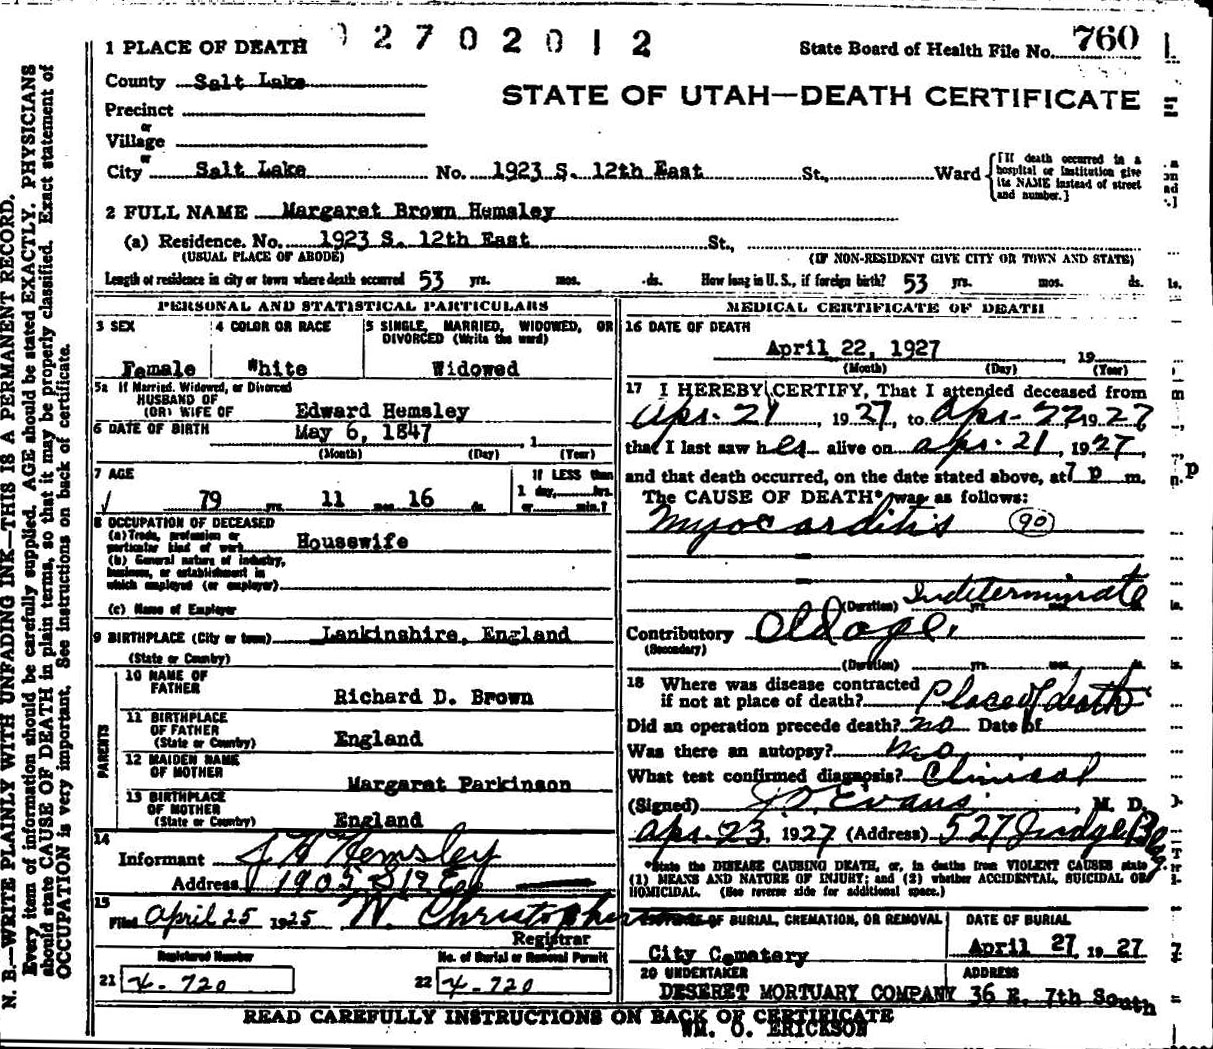 92702012
1 PLACE OF DEATH
State Board of Health File No. 760
County Salt Lake
STATE OF UTAH—DEATH CERTIFICATE
Precinct
or
Village
or
City Salt Lake No. 1923 S. 12th East St., Ward {[If death occurred in a hospital or institution give its NAME instead of street and number.]
2 FULL NAME Margaret Brown Hemsley
(a) Residence. No. 1923 S. 12th East St.,
(USUAL PLACE OF ABODE) (IF NON-RESIDENT GIVE CITY OR TOWN AND STATE)
Length of residence in city or town where death occurred 53 yrs. mos. ds. How long in U.S., if foreign birth? 53 yrs. mos. ds.
PERSONAL AND STATISTICAL PARTICULARS
3 SEX
Female
4 COLOR OR RACE
White
5 SINGLE, MARRIED, WIDOWED, OR
DIVORCED (Write the word)
Widowed
5a If Married, Widowed, or Divorced
HUSBAND OF
(OR) WIFE OF Edward Hemsley
6 DATE OF BIRTH May 6, 1847, 1
(Month) (Day) (Year)
7 AGE
79 yrs. 11 mos. 16 ds.
If LESS than
1 day, hrs.
or min.?
8 OCCUPATION OF DECEASED
(a) Trade, profession or
particular kind of work Housewife
(b) General nature of industry,
business, or establishment in
which employed (or employer)
(c) Name of Employer
9 BIRTHPLACE (City or town) Lankinshire, England
(State or Country)
PARENTS
10 NAME OF
FATHER Richard D. Brown
11 BIRTHPLACE
OF FATHER
(State or Country) England
12 MAIDEN NAME
OF MOTHER Margaret Parkinson
13 BIRTHPLACE
OF MOTHER
(State or Country) England
14
Informant J H Hemsley
Address 1905 S 12 E
15
Filed April 25 1925 W Christopherson
Registrar
Registered Number
21 4-720
No. of Burial or Removal Permit
22 4-720
MEDICAL CERTIFICATE OF DEATH
16 DATE OF DEATH
April 22, 1927, 19
(Month) (Day) (Year)
17 I HEREBY CERTIFY, That I attended deceased from
Apr. 21, 1927, to Apr. 22 1927
that I last saw her alive on apr. 21, 1927,
and that death occurred, on the date stated above, at 7 p m.
The CAUSE OF DEATH* was as follows:
Myocarditis (90)
(Duration) Indeterminate yrs. mos. ds.
Contributory Old age.
(Secondary)
(Duration) yrs. mos. ds.
18 Where was disease contracted
if not at place of death? Place of death
Did an operation precede death? no Date of
Was there an autopsy? no
What test confirmed diagnosis? Clinical
(Signed) Evans, M. D.
Apr. 23, 1927 (Address) 527 Judge Bldg
*State the DISEASE CAUSING DEATH, or, in deaths from VIOLENT CAUSES state
(1) MEANS AND NATURE OF INJURY; and (2) whether ACCIDENTAL, SUICIDAL OR
HOMICIDAL. (See reverse side for additional space.)
OF BURIAL, CREMATION, OR REMOVAL
City Cemetery
DATE OF BURIAL
April 27, 1927
20 UNDERTAKER
DESERET MORTUARY COMPANY
ADDRESS
36 E. 7th South
READ CAREFULLY INSTRUCTIONS ON BACK OF CERTIFICATE
WM. O. ERICKSON
N. B.—WRITE PLAINLY WITH UNFADING INK—THIS IS A PERMANENT RECORD.
Every item of information should be carefully supplied. AGE should be stated EXACTLY. PHYSICIANS
should state CAUSE OF DEATH in plain terms, so that it may be properly classified. Exact statement of
OCCUPATION is very important. See instructions on back of certificate.